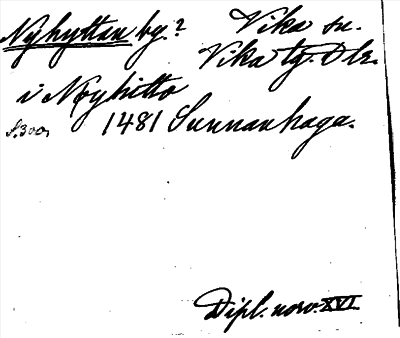 Nyhyttan by.? Vika sn.
Vika tg. Dlr.
i Nyhitto
s. 300, 1481 Sunnanhaga.
Dipl. norv. XVI